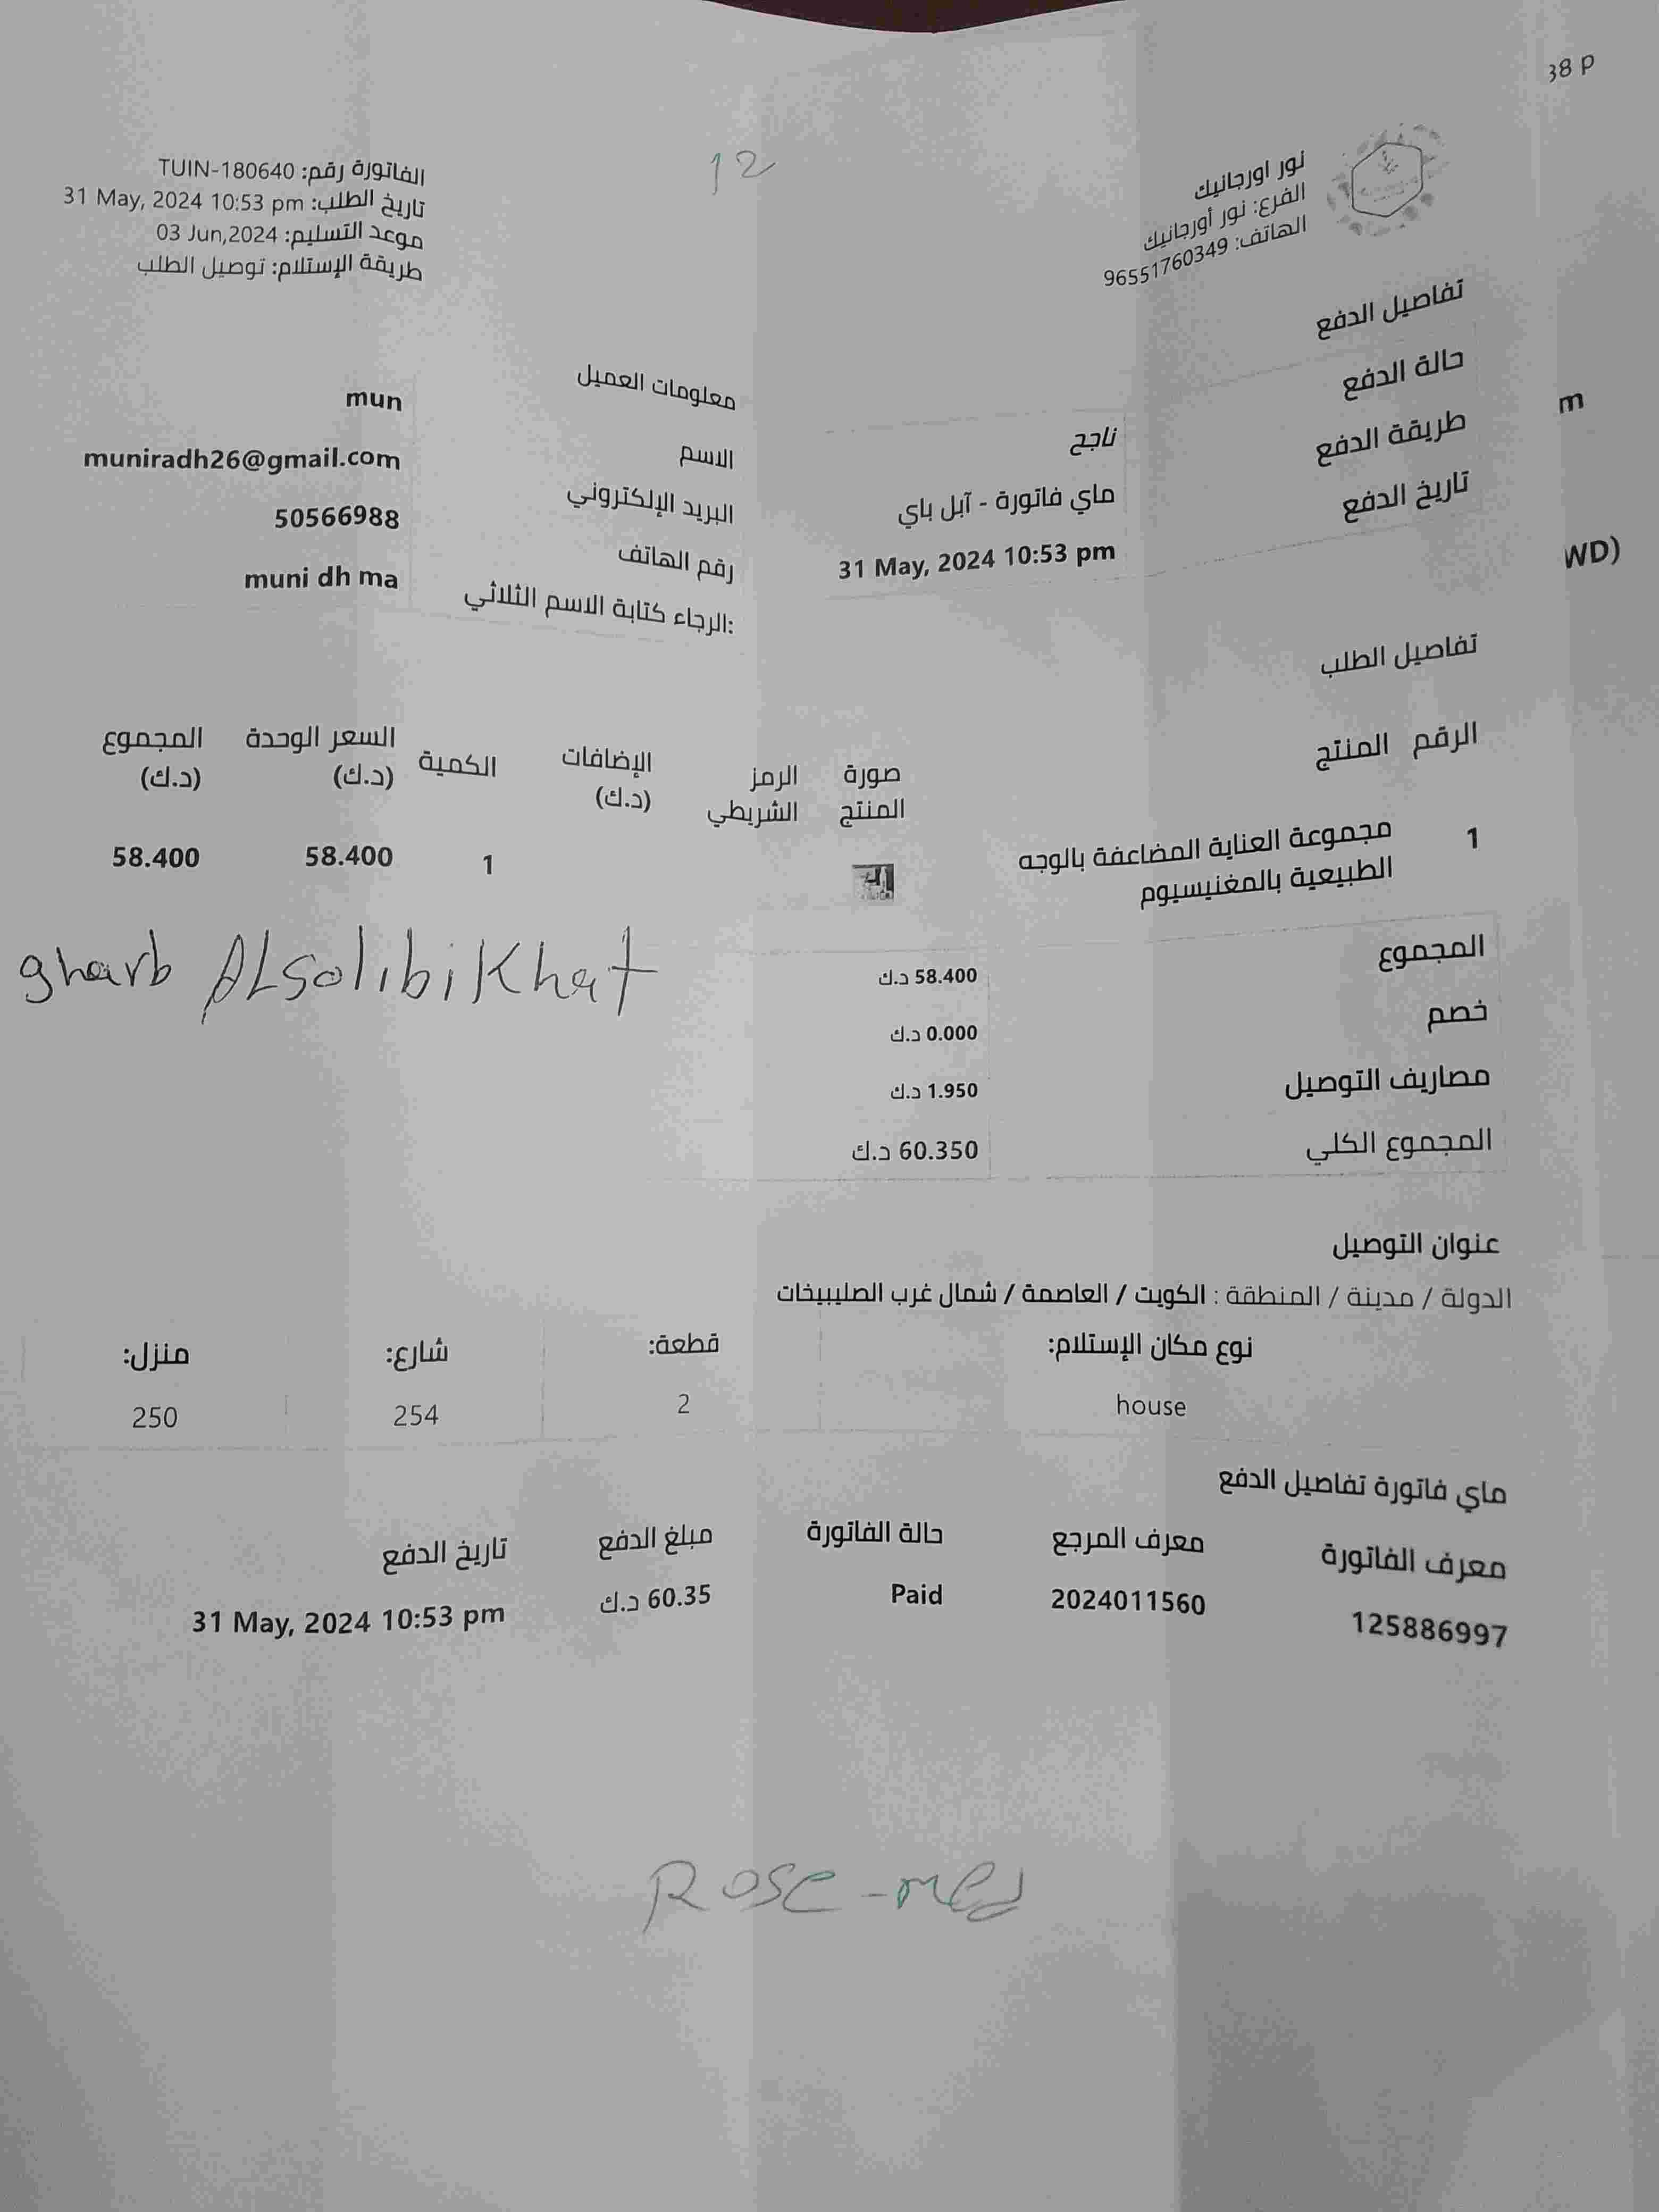 38 p
12
نور اورجانيك
الفرع: نور أورجانيك
الهاتف: 96551760349
الفاتورة رقم: TUIN-180640
تاريخ الطلب: 31 May, 2024 10:53 pm
موعد التسليم: 03 Jun,2024
طريقة الإستلام: توصيل الطلب
تفاصيل الدفع
حالة الدفع ناجح
طريقة الدفع ماي فاتورة - آبل باي
تاريخ الدفع 31 May, 2024 10:53 pm
m
WD)
معلومات العميل
الاسم mun
البريد الإلكتروني muniradh26@gmail.com
رقم الهاتف 50566988
الرجاء كتابة الاسم الثلاثي: muni dh ma
تفاصيل الطلب
الرقم المنتج صورة المنتج الرمز الشريطي الإضافات (د.ك) الكمية السعر الوحدة (د.ك) المجموع (د.ك)
1 مجموعة العناية المضاعفة بالوجه الطبيعية بالمغنيسيوم 1 58.400 58.400
gharb ALsolibiKhat
المجموع 58.400 د.ك
خصم 0.000 د.ك
مصاريف التوصيل 1.950 د.ك
المجموع الكلي 60.350 د.ك
عنوان التوصيل
الدولة / مدينة / المنطقة : الكويت / العاصمة / شمال غرب الصليبيخات
نوع مكان الإستلام: قطعة: شارع: منزل:
house 2 254 250
ماي فاتورة تفاصيل الدفع
معرف الفاتورة معرف المرجع حالة الفاتورة مبلغ الدفع تاريخ الدفع
125886997 2024011560 Paid 60.35 د.ك 31 May, 2024 10:53 pm
Rose-med